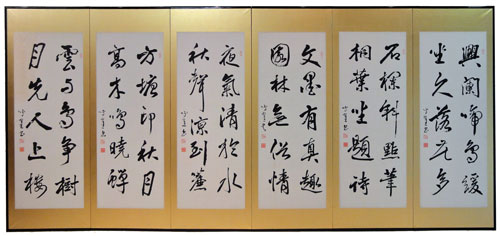 興闌啼鳥緩
坐久落花多
石欄斜點筆
桐葉坐題詩
文墨有真趣
園林無俗情
夜氣清於水
秋聲涼到簾
方塘印秋月
高木鳴曉蟬
雲与鳥爭樹
月先人上樓